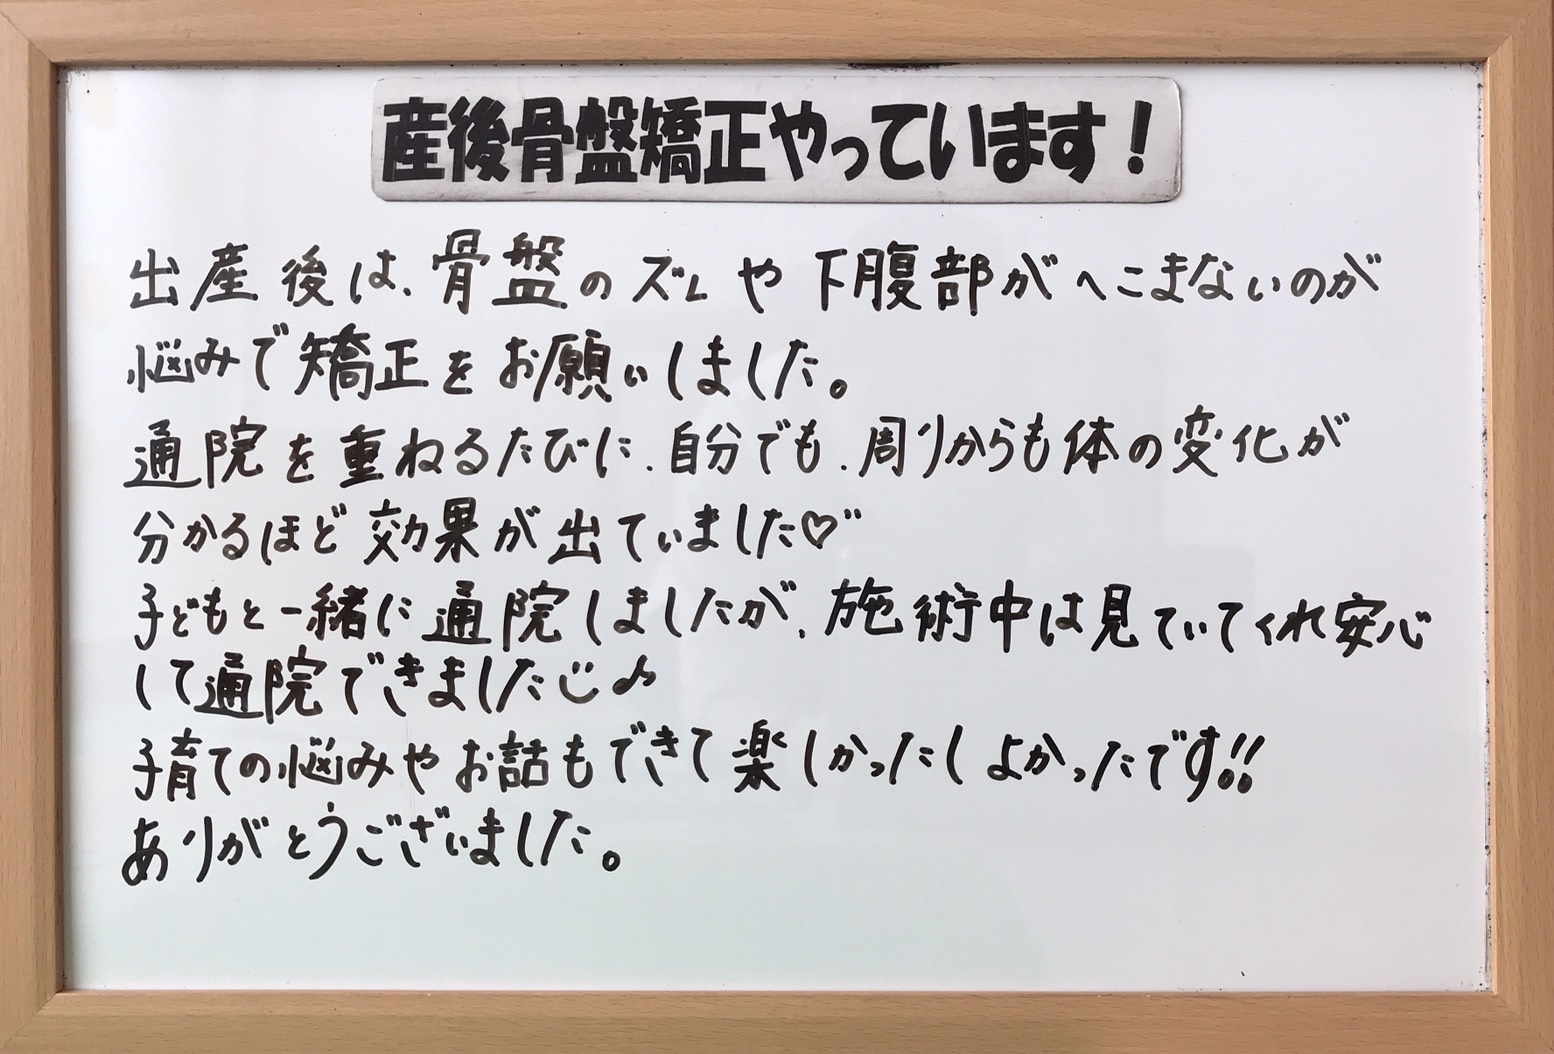 産後骨盤矯正やっています！
出産後は、骨盤のズレや下腹部がへこまないのが
悩みで矯正をお願いしました。
通院を重ねるたびに、自分でも、周りからも体の変化が
分かるほど効果が出ていました♡"
子どもと一緒に通院しましたが、施術中は見ていてくれ安心
して通院できました☺♪
子育ての悩みやお話もできて楽しかったしよかったです!!
ありがとうございました。